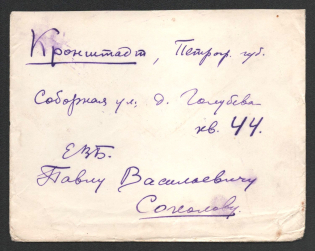 Кронштадт, Петрогр. губ.
Соборная ул. д. Голубева
кв. 44.
ЕВБ.
Павлу Василевичу
Соколову.